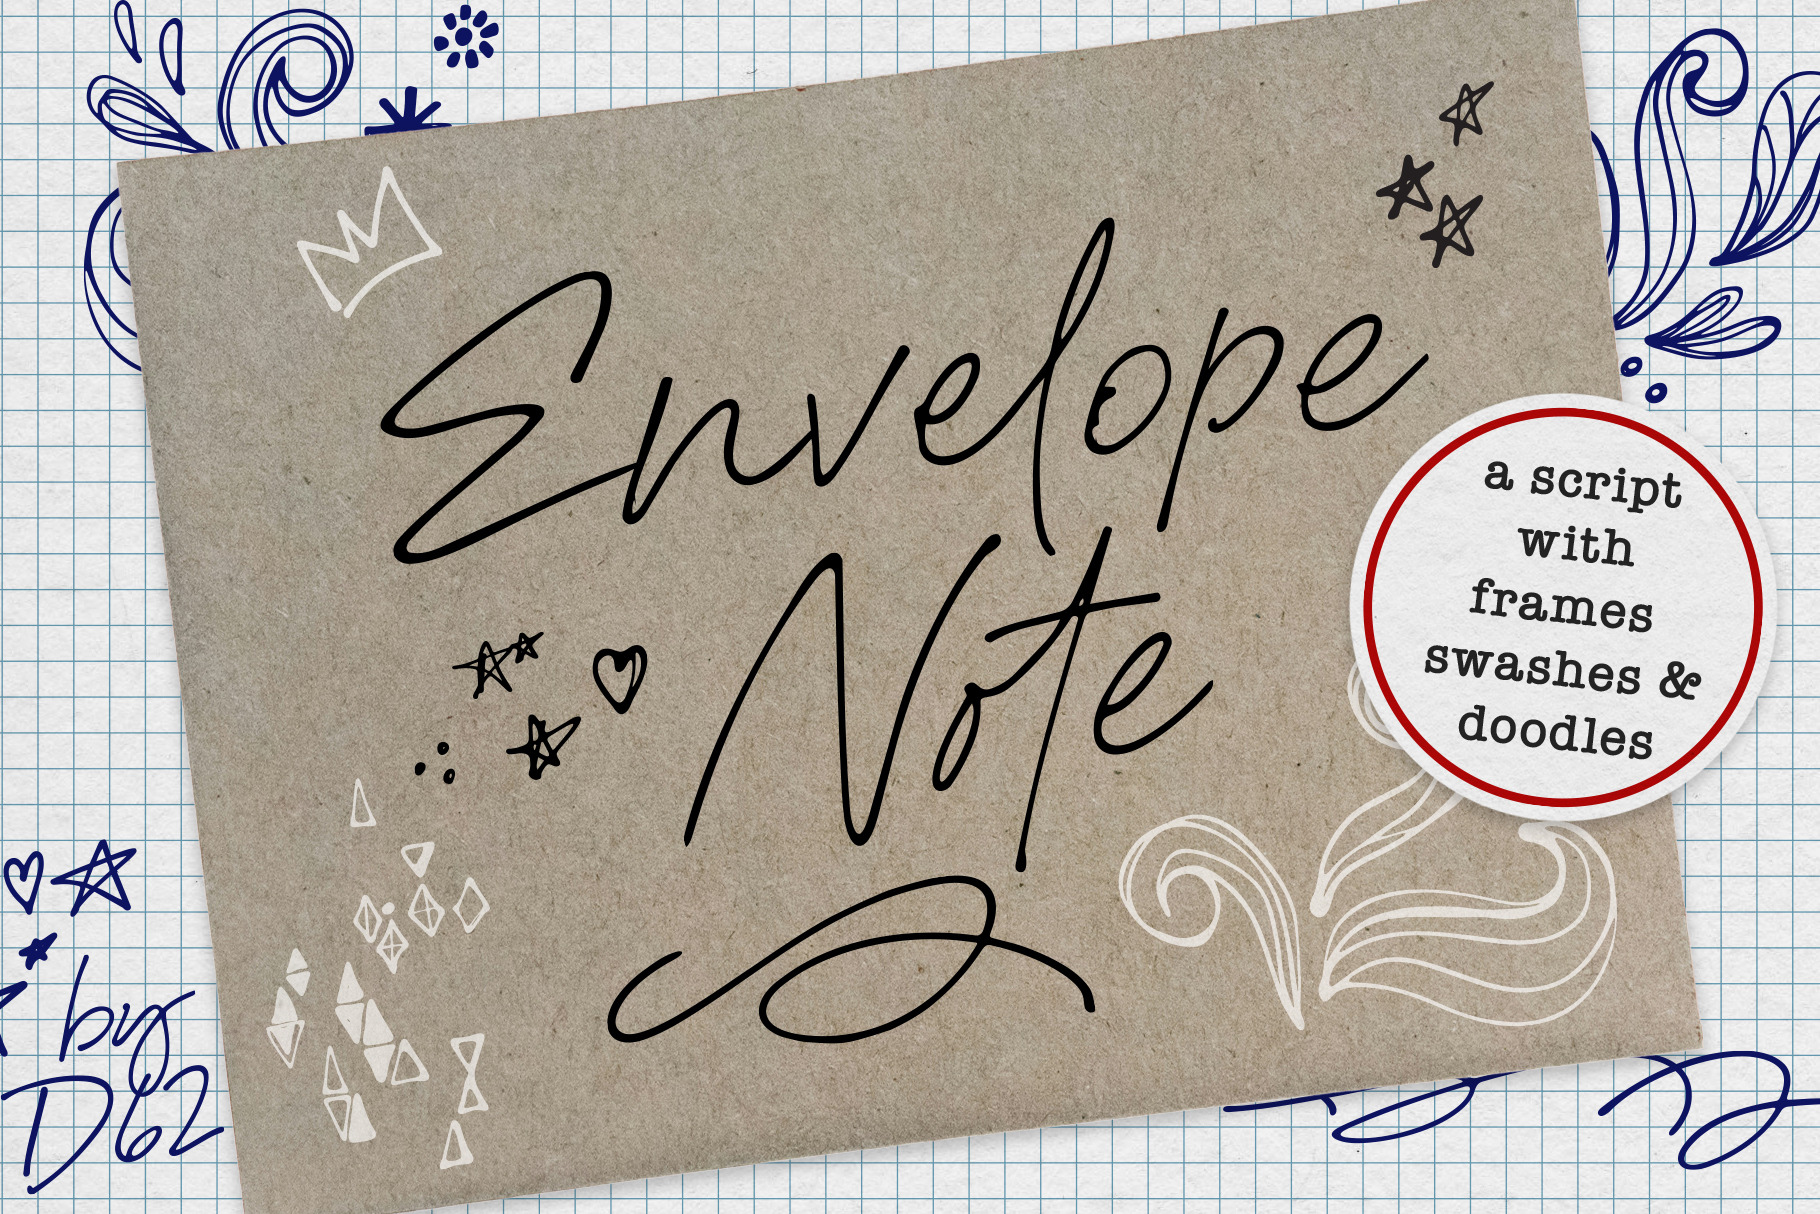 Envelope
Note
a script
with
frames
swashes &
doodles
by
D62